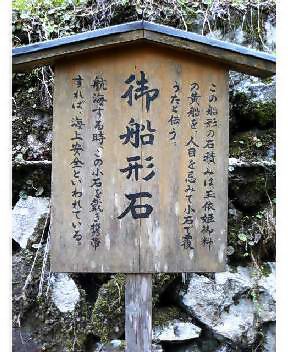 この船形の石積みは玉依姫御料
の黄船を、人目を忌みて小石で覆
うたと伝う。
御船形石
航海する時、この小石を戴き携帯
すれば海上安全といわれている。